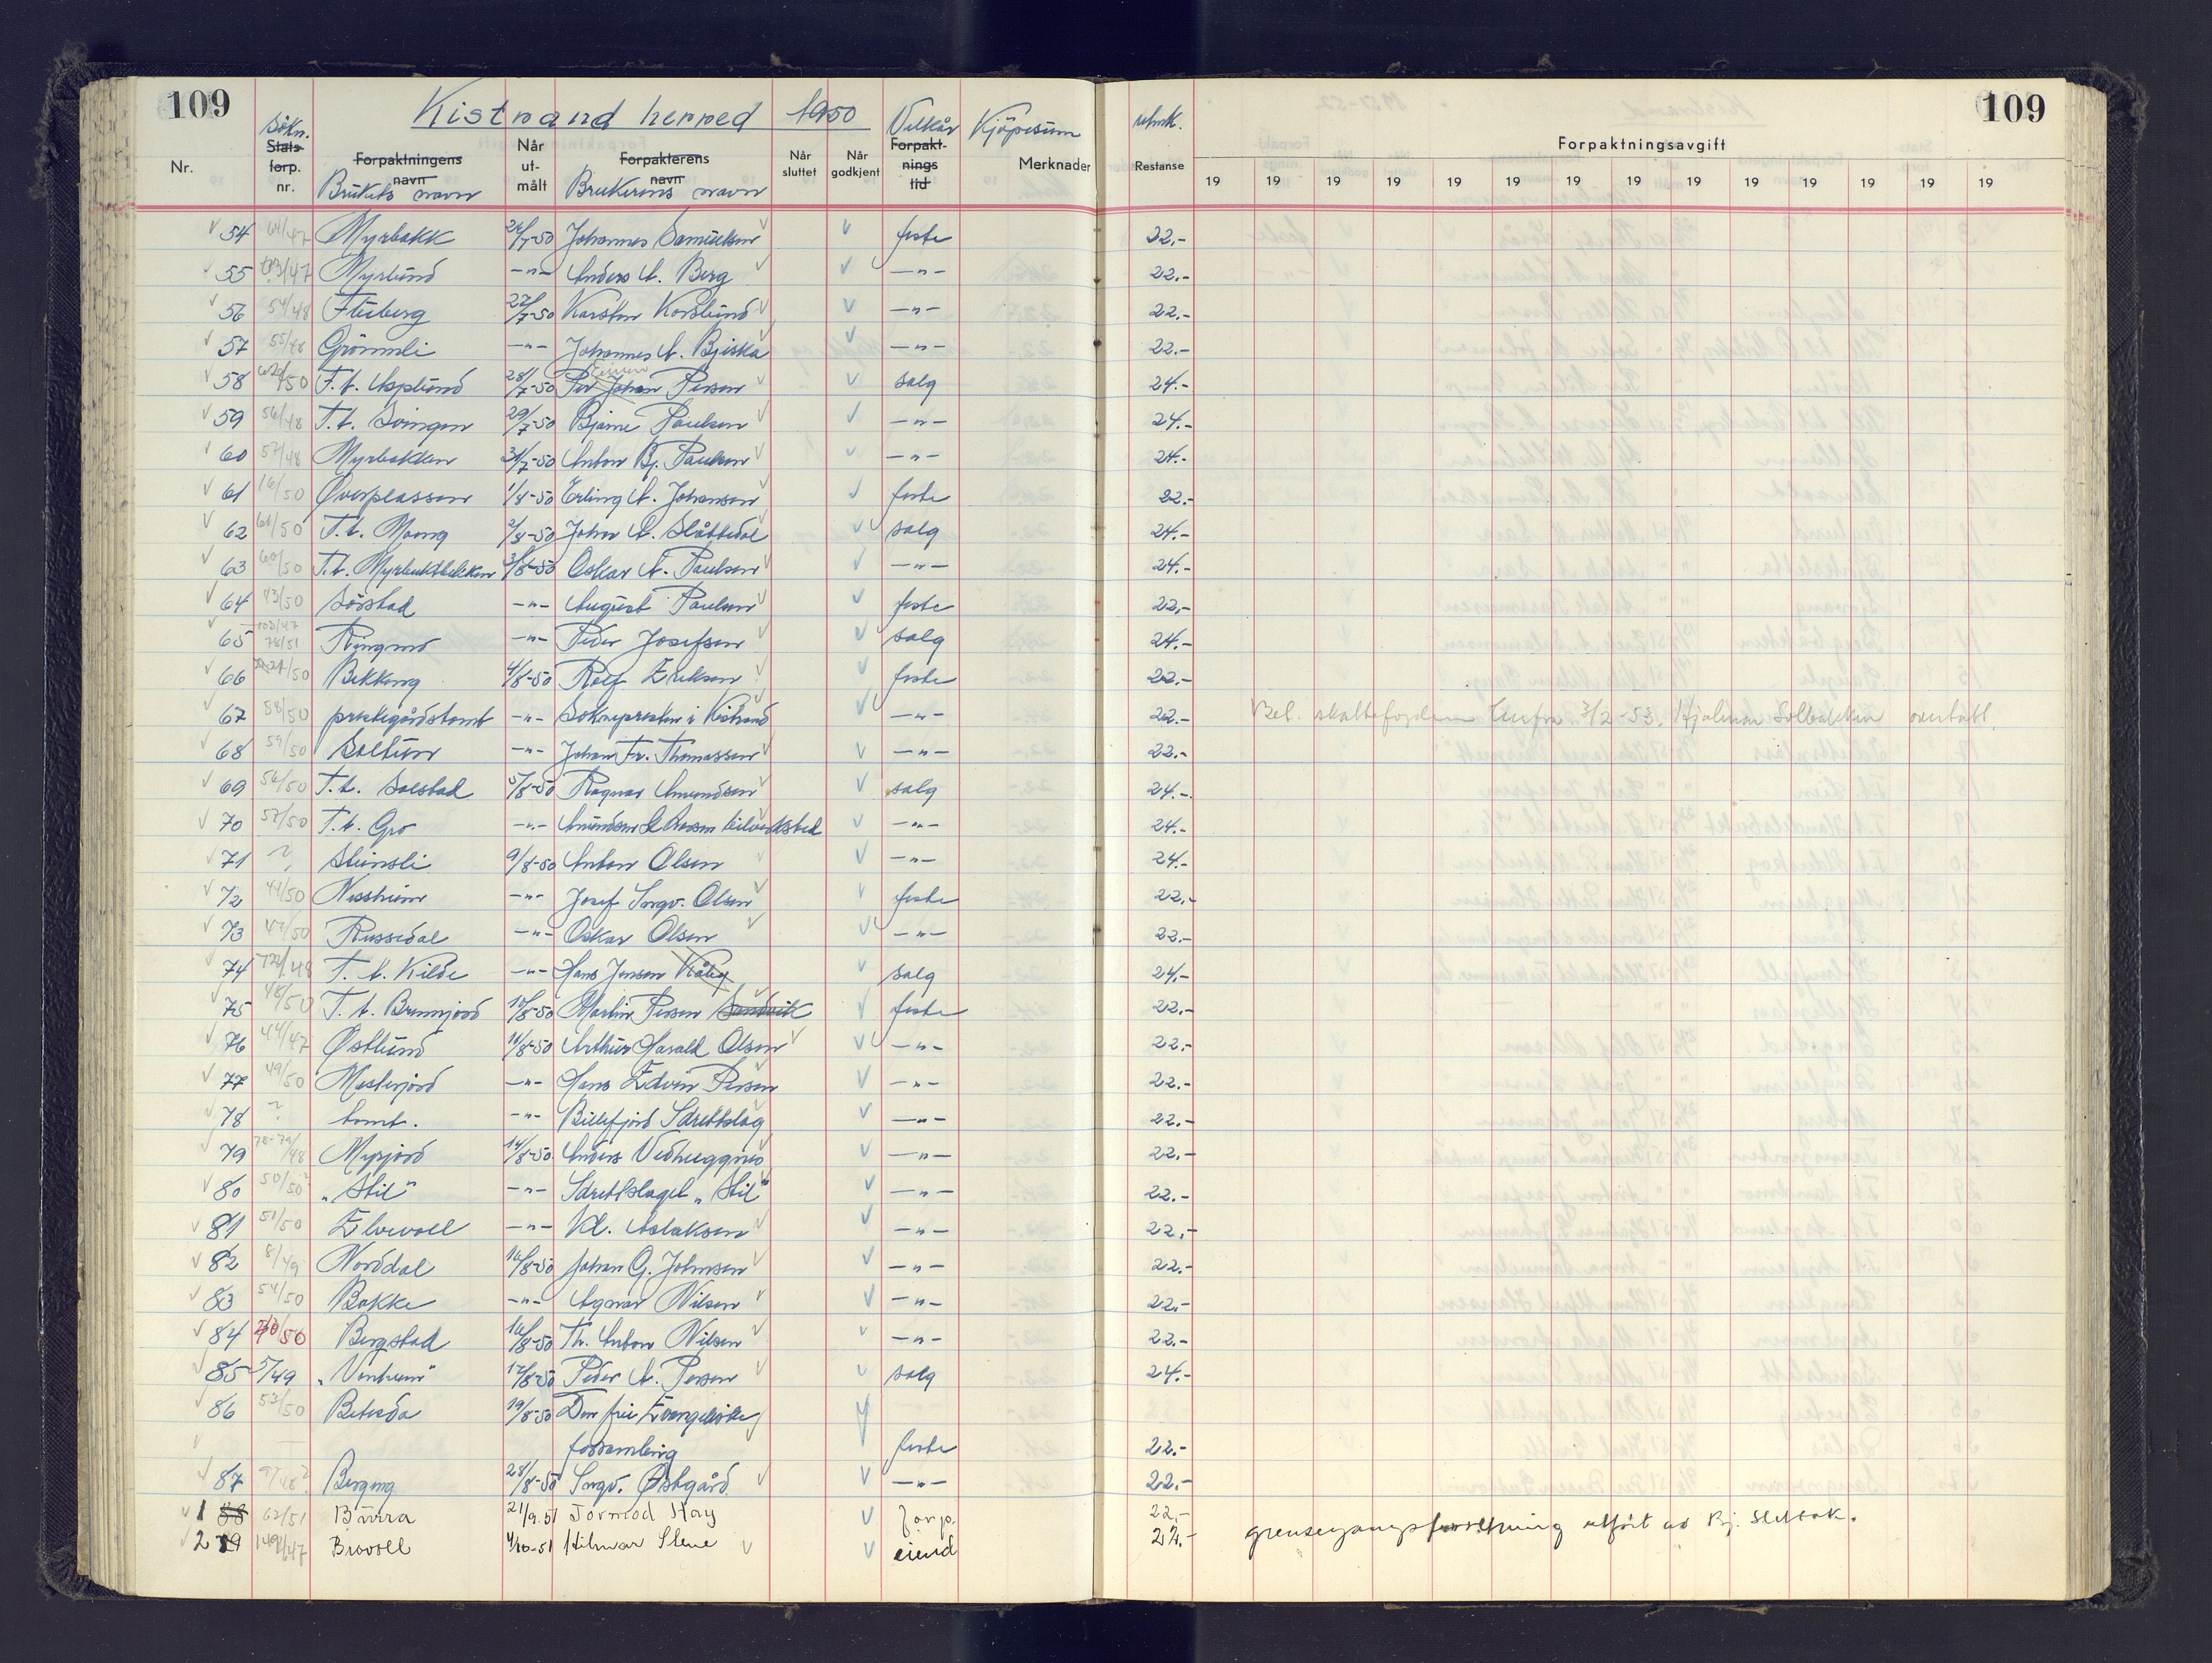 109
Kistrand herred 1950
109
Nr.
Søkn. Stats- forp. nr.
Forpaktningens navn Brukets navn
Når ut- målt
Forpakterens navn Brukerens navn
Når sluttet
Når godkjent
Vilkår Forpakt- nings tid
Kjøpesum Merknader
Restanse
Forpaktningsavgift
19 19 19 19 19 19 19 19 19 19 19 19 19 19
54 64/47 Myrbakk 26/7-50 Johannes Samuelsen feste 22.-
55 103/47 Myrlund -"- Anders A. Berg -"- 22.-
56 54/48 Fluberg 27/7-50 Karsten Korslund -"- 22.-
57 55/48 Grønnli -"- Johannes A. Bjiska -"- 22.-
58 /50 T.t. Asplund 28/7-50 Per Johan Persen salg 24.-
59 56/48 T.t. Svingen 29/7-50 Bjarne Paulsen -"- 24.-
60 57/48 Myrbakken 31/7-50 Anton Bj. Paulsen -"- 24.-
61 16/50 Øverplassen 1/8-50 Erling A. Johansen feste 22.-
62 61/50 T.t. Moeng 2/8-50 Johan A. Slåttedal salg 24.-
63 60/50 T.t. Myrbuktbekken 3/8-50 Oskar A. Paulsen -"- 24.-
64 43/50 Sørstad -"- August Paulsen feste 22.-
65 103/47 78/51 Ringmo -"- Peder Josefsen salg 24.-
66 /50 Bekkeng 4/8-50 Rolf Eriksen feste 22.-
67 58/50 prestegårdstomt -"- Soknepresten i Kistrand -"- 22.- Bet. skattefogden 3/2-53. Hjalmar Solbakken overtatt
68 59/50 Soltun -"- Johan Fr. Thomassen -"- 22.-
69 56/50 T.t. Solstad 5/8-50 Ragnar Amundsen salg 24.-
70 57/50 T.t. Gro -"- Amundsen & Persen bilverksted -"- 24.-
71 ? Steinsli 9/8-50 Anton Olsen -"- 24.-
72 44/50 Nessheim -"- Josef Ingv. Olsen feste 22.-
73 47/50 Russedal -"- Oskar Olsen -"- 22.-
74 /48 T.t. Kilde -"- Hans Jensen Råby salg 24.-
75 48/50 T.t. Brennjord 10/8-50 Martin Persen Sandvik feste 22.-
76 44/47 Østlund 11/8-50 Arthur Harald Olsen -"- 22.-
77 49/50 Mesterjord -"- Hans Edvin Persen -"- 22.-
78 ? tomt. -"- Billefjord Idrettslag -"- 22.-
79 78-79/48 Myrjord 14/8-50 Anders Vedhuggnes -"- 22.-
80 50/50 "Stil" -"- Idrettslaget "Stil" -"- 22.-
81 51/50 Elvevoll -"- Kl. Aslaksen -"- 22.-
82 8/49 Norddal 16/8-50 Johan G. Johnsen -"- 22.-
83 54/50 Bakke -"- Agnar Nilsen -"- 22.-
84 /50 Bergstad 16/8-50 Th. Anton Nilsen -"- 22.-
85 5/49 "Vonheim" 17/8-50 Peder A. Persen salg 24.-
86 53/50 Betesda 19/8-50 Den frie Evangeliske
forsamling feste 22.-
87 9/48? Bergeng 28/8-50 Ingv. Østgård -"- 22.-
1 88 62/51 Bærra 21/9.51 Tormod Hay forp. 22.-
2 89 149/47 Brovoll 4/10-51 Hilmar Stene eiend 22.- grensegangsforretning utført av Bj. Slettbak.